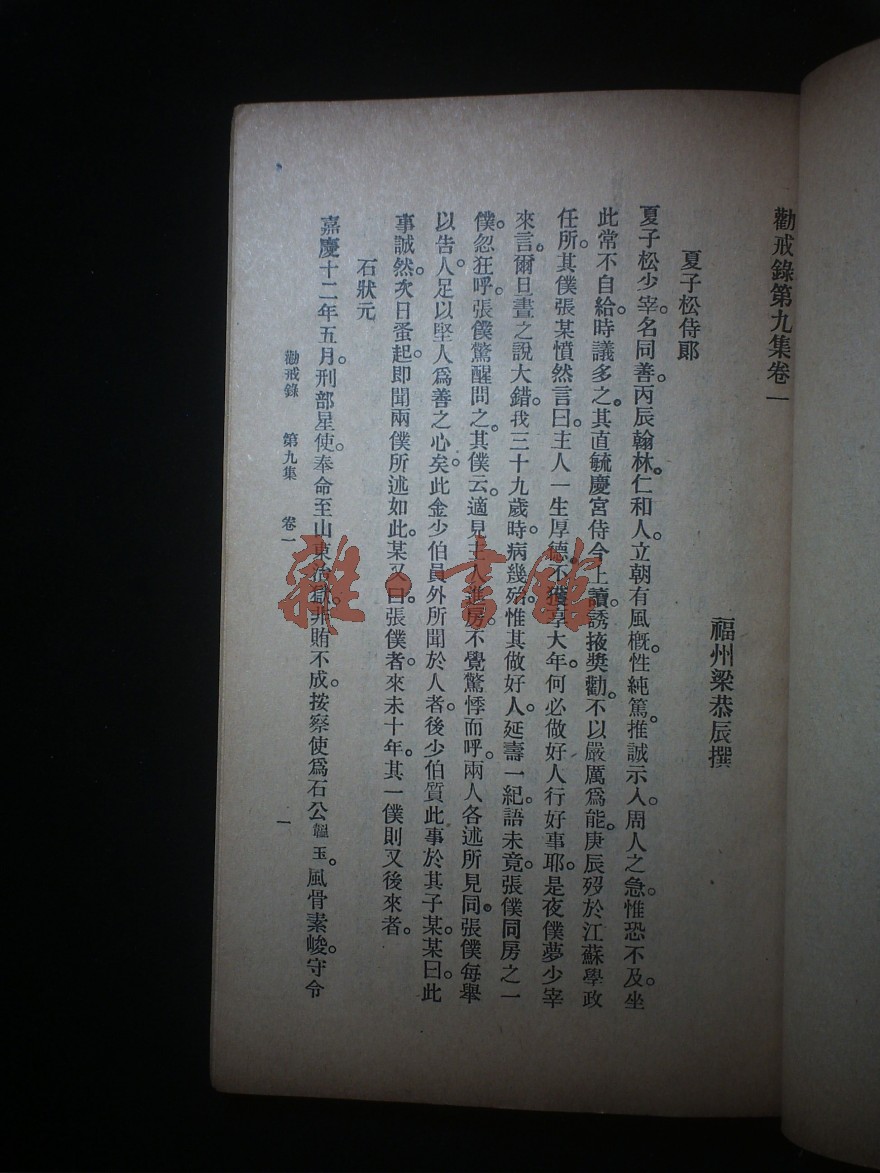 勸戒錄第九集卷一
福州梁恭辰撰
夏子松侍郎
夏子松少宰。名同善。丙辰翰林。仁和人。立朝有風概。性純篤。推誠示人。周人之急。惟恐不及。坐
此常不自給。時議多之。其直毓慶宮侍今上讀。誘掖獎勸。不以嚴厲為能。庚辰歿於江蘇學政
任所。其僕張某憤然言曰。主人一生厚德。不獲享大年。何必做好人行好事耶。是夜僕夢少宰
來言。爾旦晝之說大錯。我三十九歲時病幾殆。惟其做好人。延壽一紀。語未竟。張僕同房之一
僕。忽狂呼。張僕驚醒問之。其僕云。適見主人進房。不覺驚悸而呼。兩人各述所見同。張僕每舉
以告人。足以堅人為善之心矣。此金少伯員外所聞於人者。後少伯質此事於其子某。某曰。此
事誠然。次日蚤起。即聞兩僕所述如此。某又曰。張僕者。來未十年。其一僕則又後來者。
石狀元
嘉慶十二年五月。刑部星使。奉命至山東治獄。非賄不成。按察使為石公韞玉。風骨素峻。守令
勸戒錄 第九集 卷一 一
雜·書館